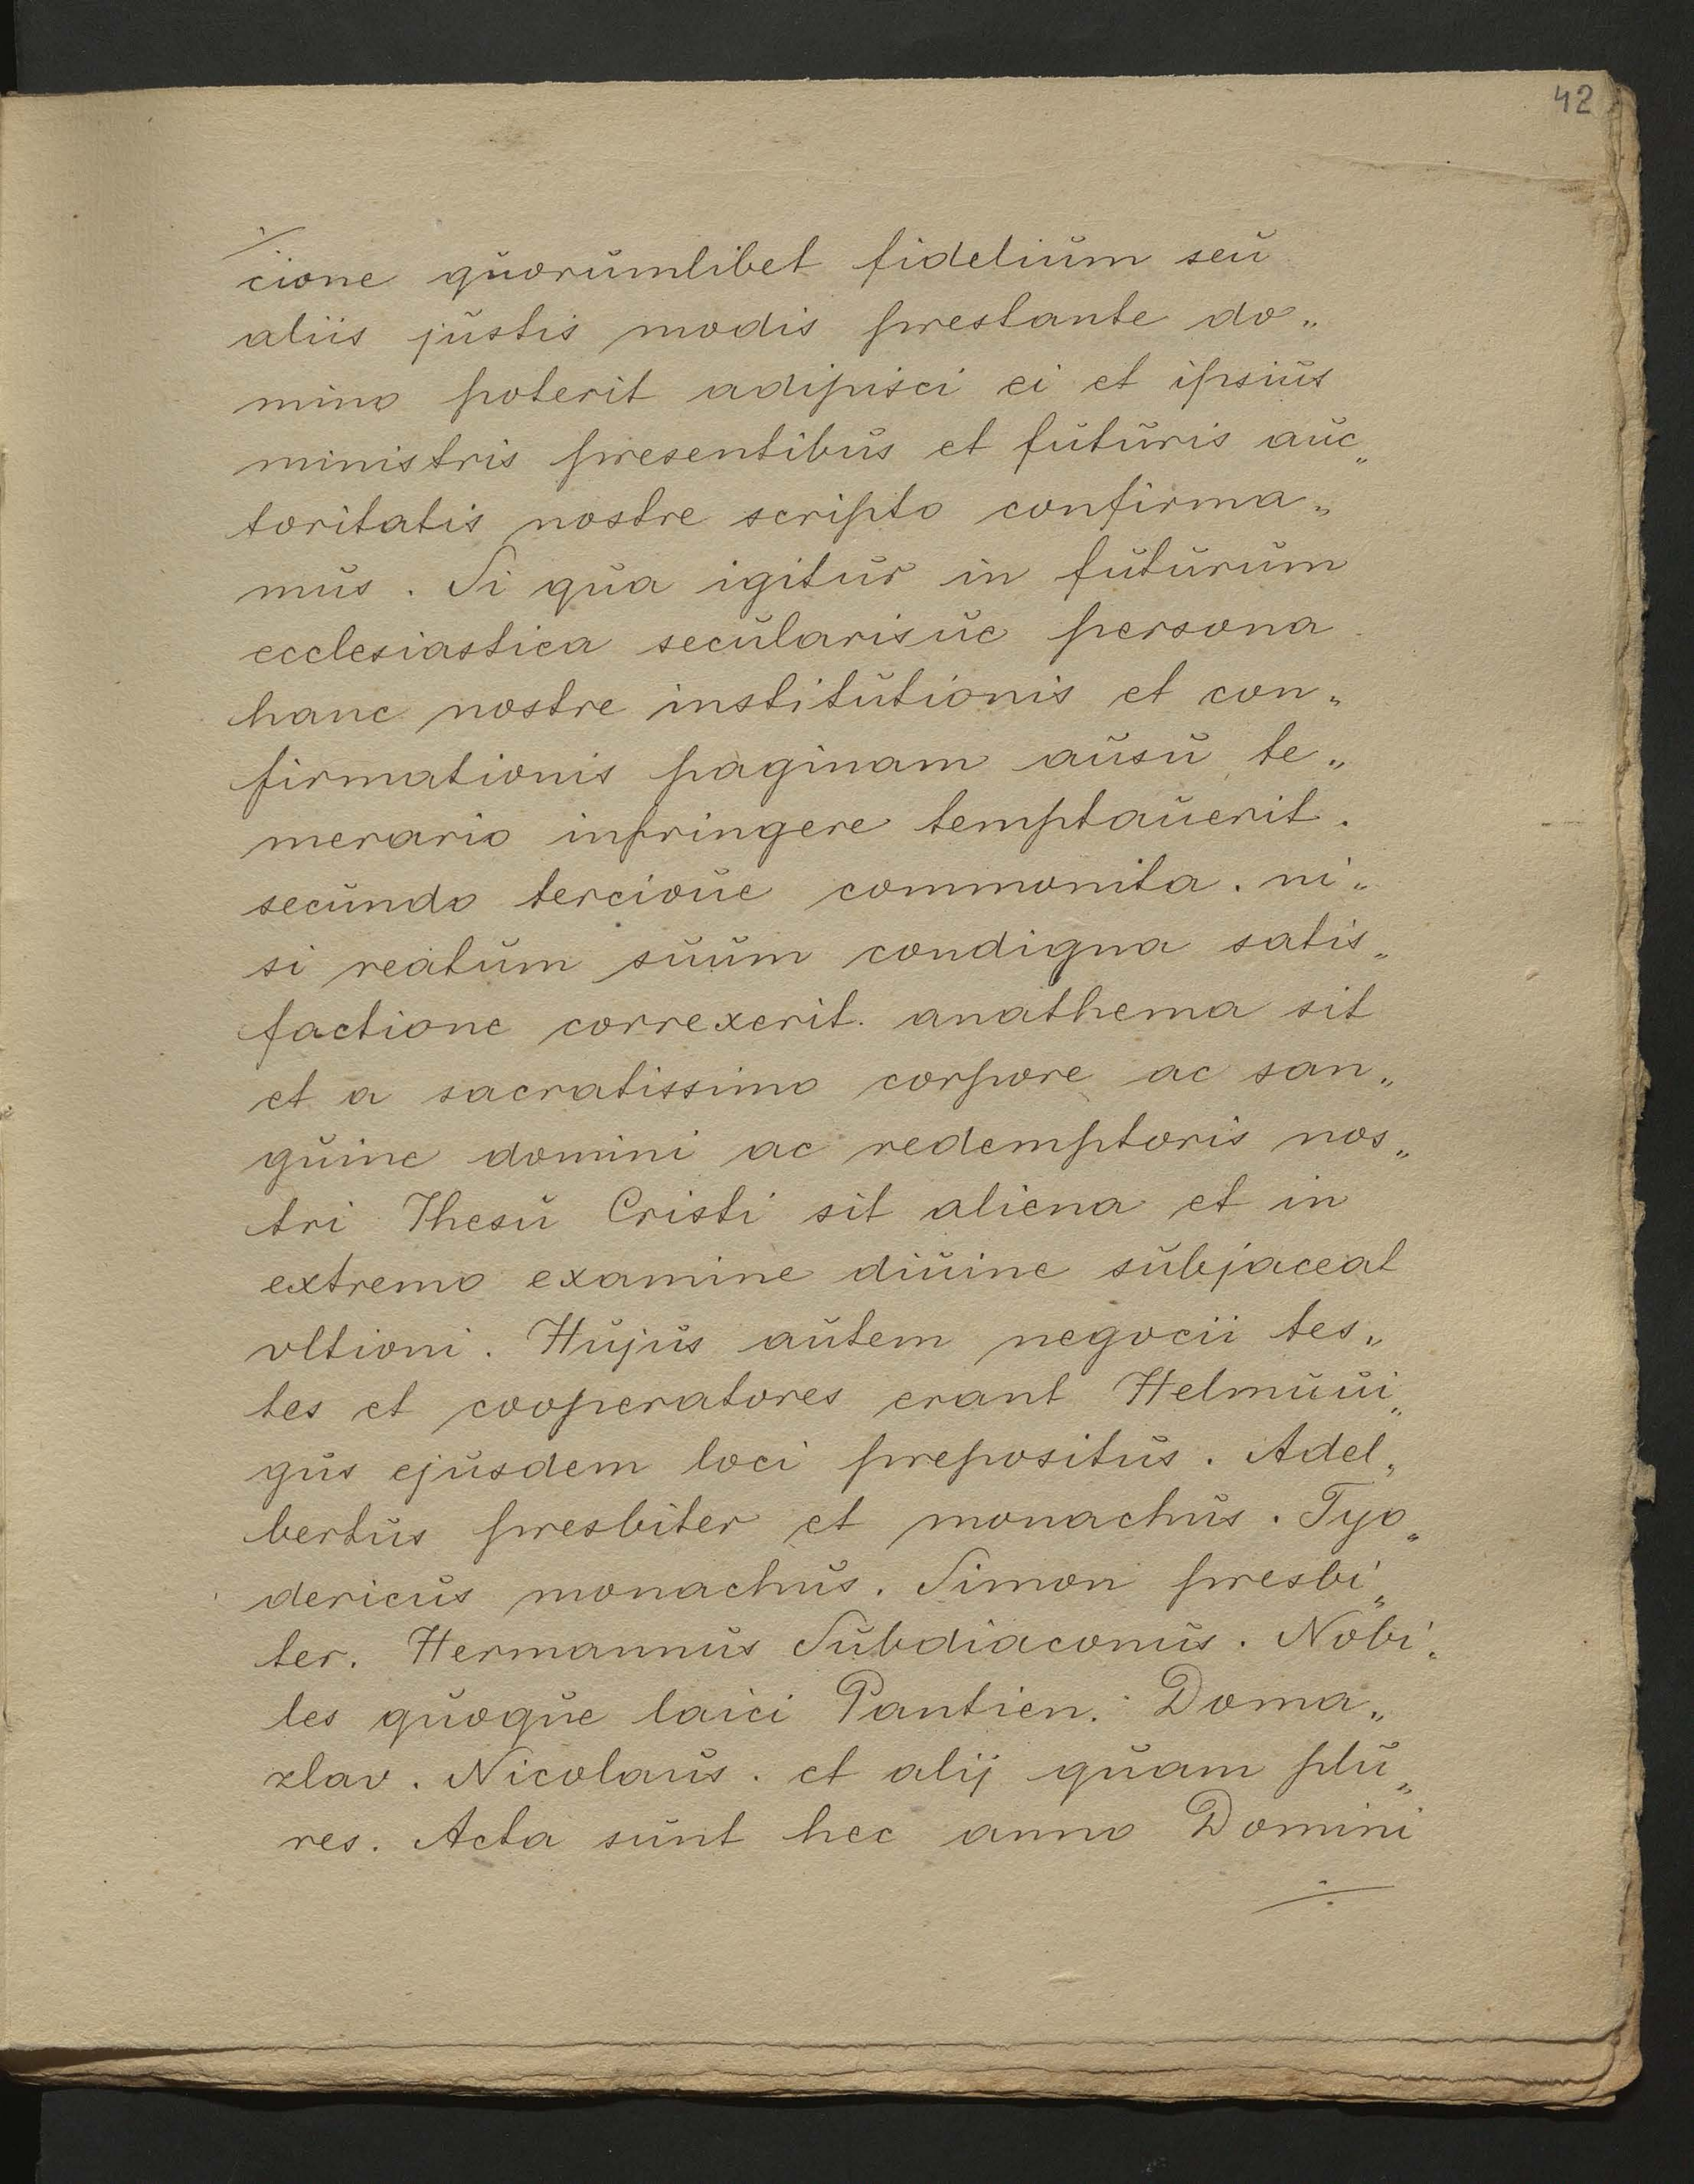 42
cione quorumlibet fidelium seu
aliis justis modis prestante do„
mino poterit adipisci ei et ipsius
ministris presentibus et futuris auc„
toritatis nostre scripto confirma„
mus. Si qua igitur in futurum
ecclesiastica secularisue persona
hanc nostre institutionis et con„
firmationis paginam ausu te„
merario infringere temptauerit.
secundo tercioue commonita. ni„
si reatum suum condigna satis„
factione correxerit. anathema sit
et a sacratissimo corpore ac san„
guine domini ac redemptoris nos„
tri Ihesu Cristi sit aliena et in
extremo examine diuine subjaceat
vltioni. Hujus autem negocii tes„
tes et cooperatores erant Helmuui„
gus ejusdem loci prepositus. Adel„
bertus presbiter et monachus. Tyo„
dericus monachus. Simon presbi„
ter. Hermannus Subdiaconus. Nobi„
les quoque laici Pantien. Doma„
zlav. Nicolaus. et alij quam plu„
res. Acta sunt hec anno Domini
÷